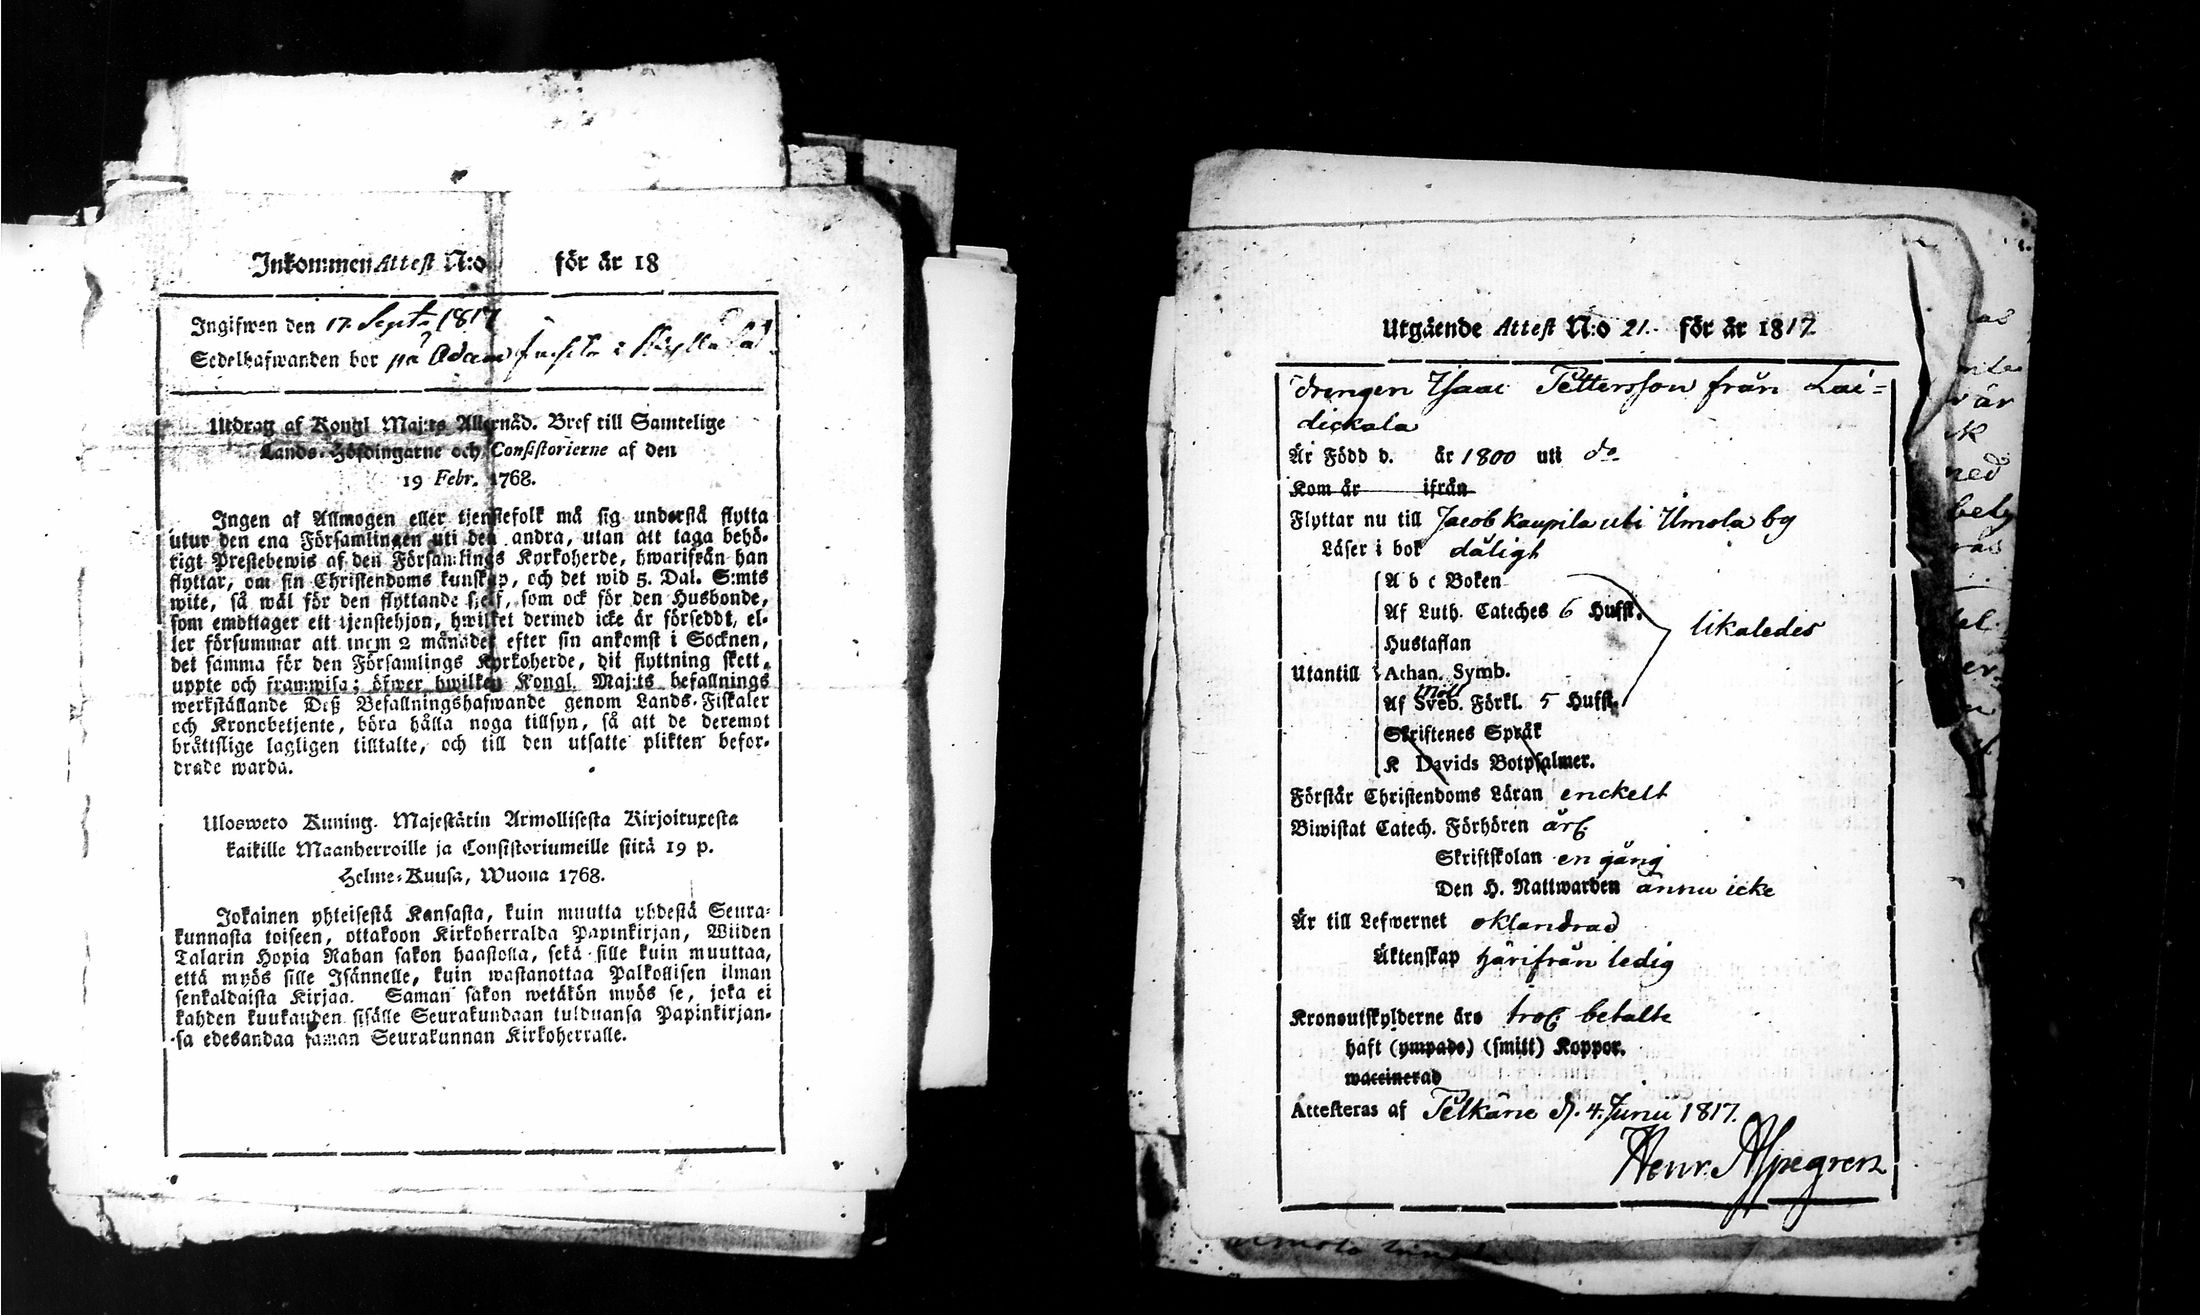 Inkommen Attest N:o för år 18
Ingifwen den 17. Sept. 1817
Sedelhafwanden bor på Adam
Utdrag af Kongl Maj:ts Allernåd. Bref till Samtelige
Lands-Höfdingarne och Consistorierne af den
19 Febr. 1768.
Ingen af Allmogen eller tjenstefolk må sig understå flytta
utur den ena Församlingen uti den andra, utan att taga behö-
rigt Prestebewis af den Församlings Kyrkoherde, hwarifrån han
flyttar, om sin Christendoms kunskap, och det wid 5. Dal. S:mts
wite, så wäl för den flyttande sjelf, som ock för den Husbonde,
som emottager ett tjenstehjon, hwilket dermed icke är försedt, el-
ler försummar att inom 2 månader efter sin ankomst i Socknen,
det samma för den Församlings Kyrkoherde, dit flyttning skett,
uppte och framwisa; öfwer hwilken Kongl. Maj:ts befallnings
werkställande Deß Befallningshafwande genom Lands-Fiskaler
och Kronobetjente, böra hålla noga tillsyn, så att de deremot
bråttslige lagligen tilltalte, och till den utsatte plikten befor-
drade warda.
Ulosweto Kuning. Majestätin Armollisesta Kirjoituxesta
kaikille Maanherroille ja Consistoriumeille siitä 19 p.
Helme-Kuusa, Wuona 1768.
Jokainen yhteisestä Kansasta, kuin muutta yhdestä Seura-
kunnasta toiseen, ottakoon Kirkoherralda Papinkirjan, Wiiden
Talarin Hopia Rahan sakon haastolla, sekä sille kuin muuttaa,
että myös sille Isännelle, kuin wastanottaa Palkollisen ilman
senkaldaista Kirjaa. Saman sakon wetäkön myös se, joka ei
kahden kuukauden sisälle Seurakundaan tulduansa Papinkirjan-
sa edesandaa saman Seurakunnan Kirkoherralle.
Utgående Attest N:o 21. för år 1817
drengen Isaac Pettersson från Lai=
dickala
Är Född d. år 1800 uti do
Kom år ifrån
Flyttar nu till Jacob Kaupila uti Umola by
Läser i bok dåligt
A b c Boken
Af Luth. Cateches 6 Hufst.
likaledes
Hustaflan
Utantill Athan. Symb.
Möll
Af Sveb. Förkl. 5 Hufst.
Skriftenes Språk
K Davids Botpsalmer.
Förstår Christendoms Läran enckelt
Biwistat Catech. Förhören årl.
Skriftskolan en gång
Den H. Nattwarden ännu icke
Är till Lefwernet oklandrad
Äktenskap härifrån ledig
Kronoutskylderne äro trol. betalte
haft (ympade) (smitt) Koppor.
waccinerad
Attesteras af Pelkäne d. 4. Junii 1817.
Henr. Alpegren